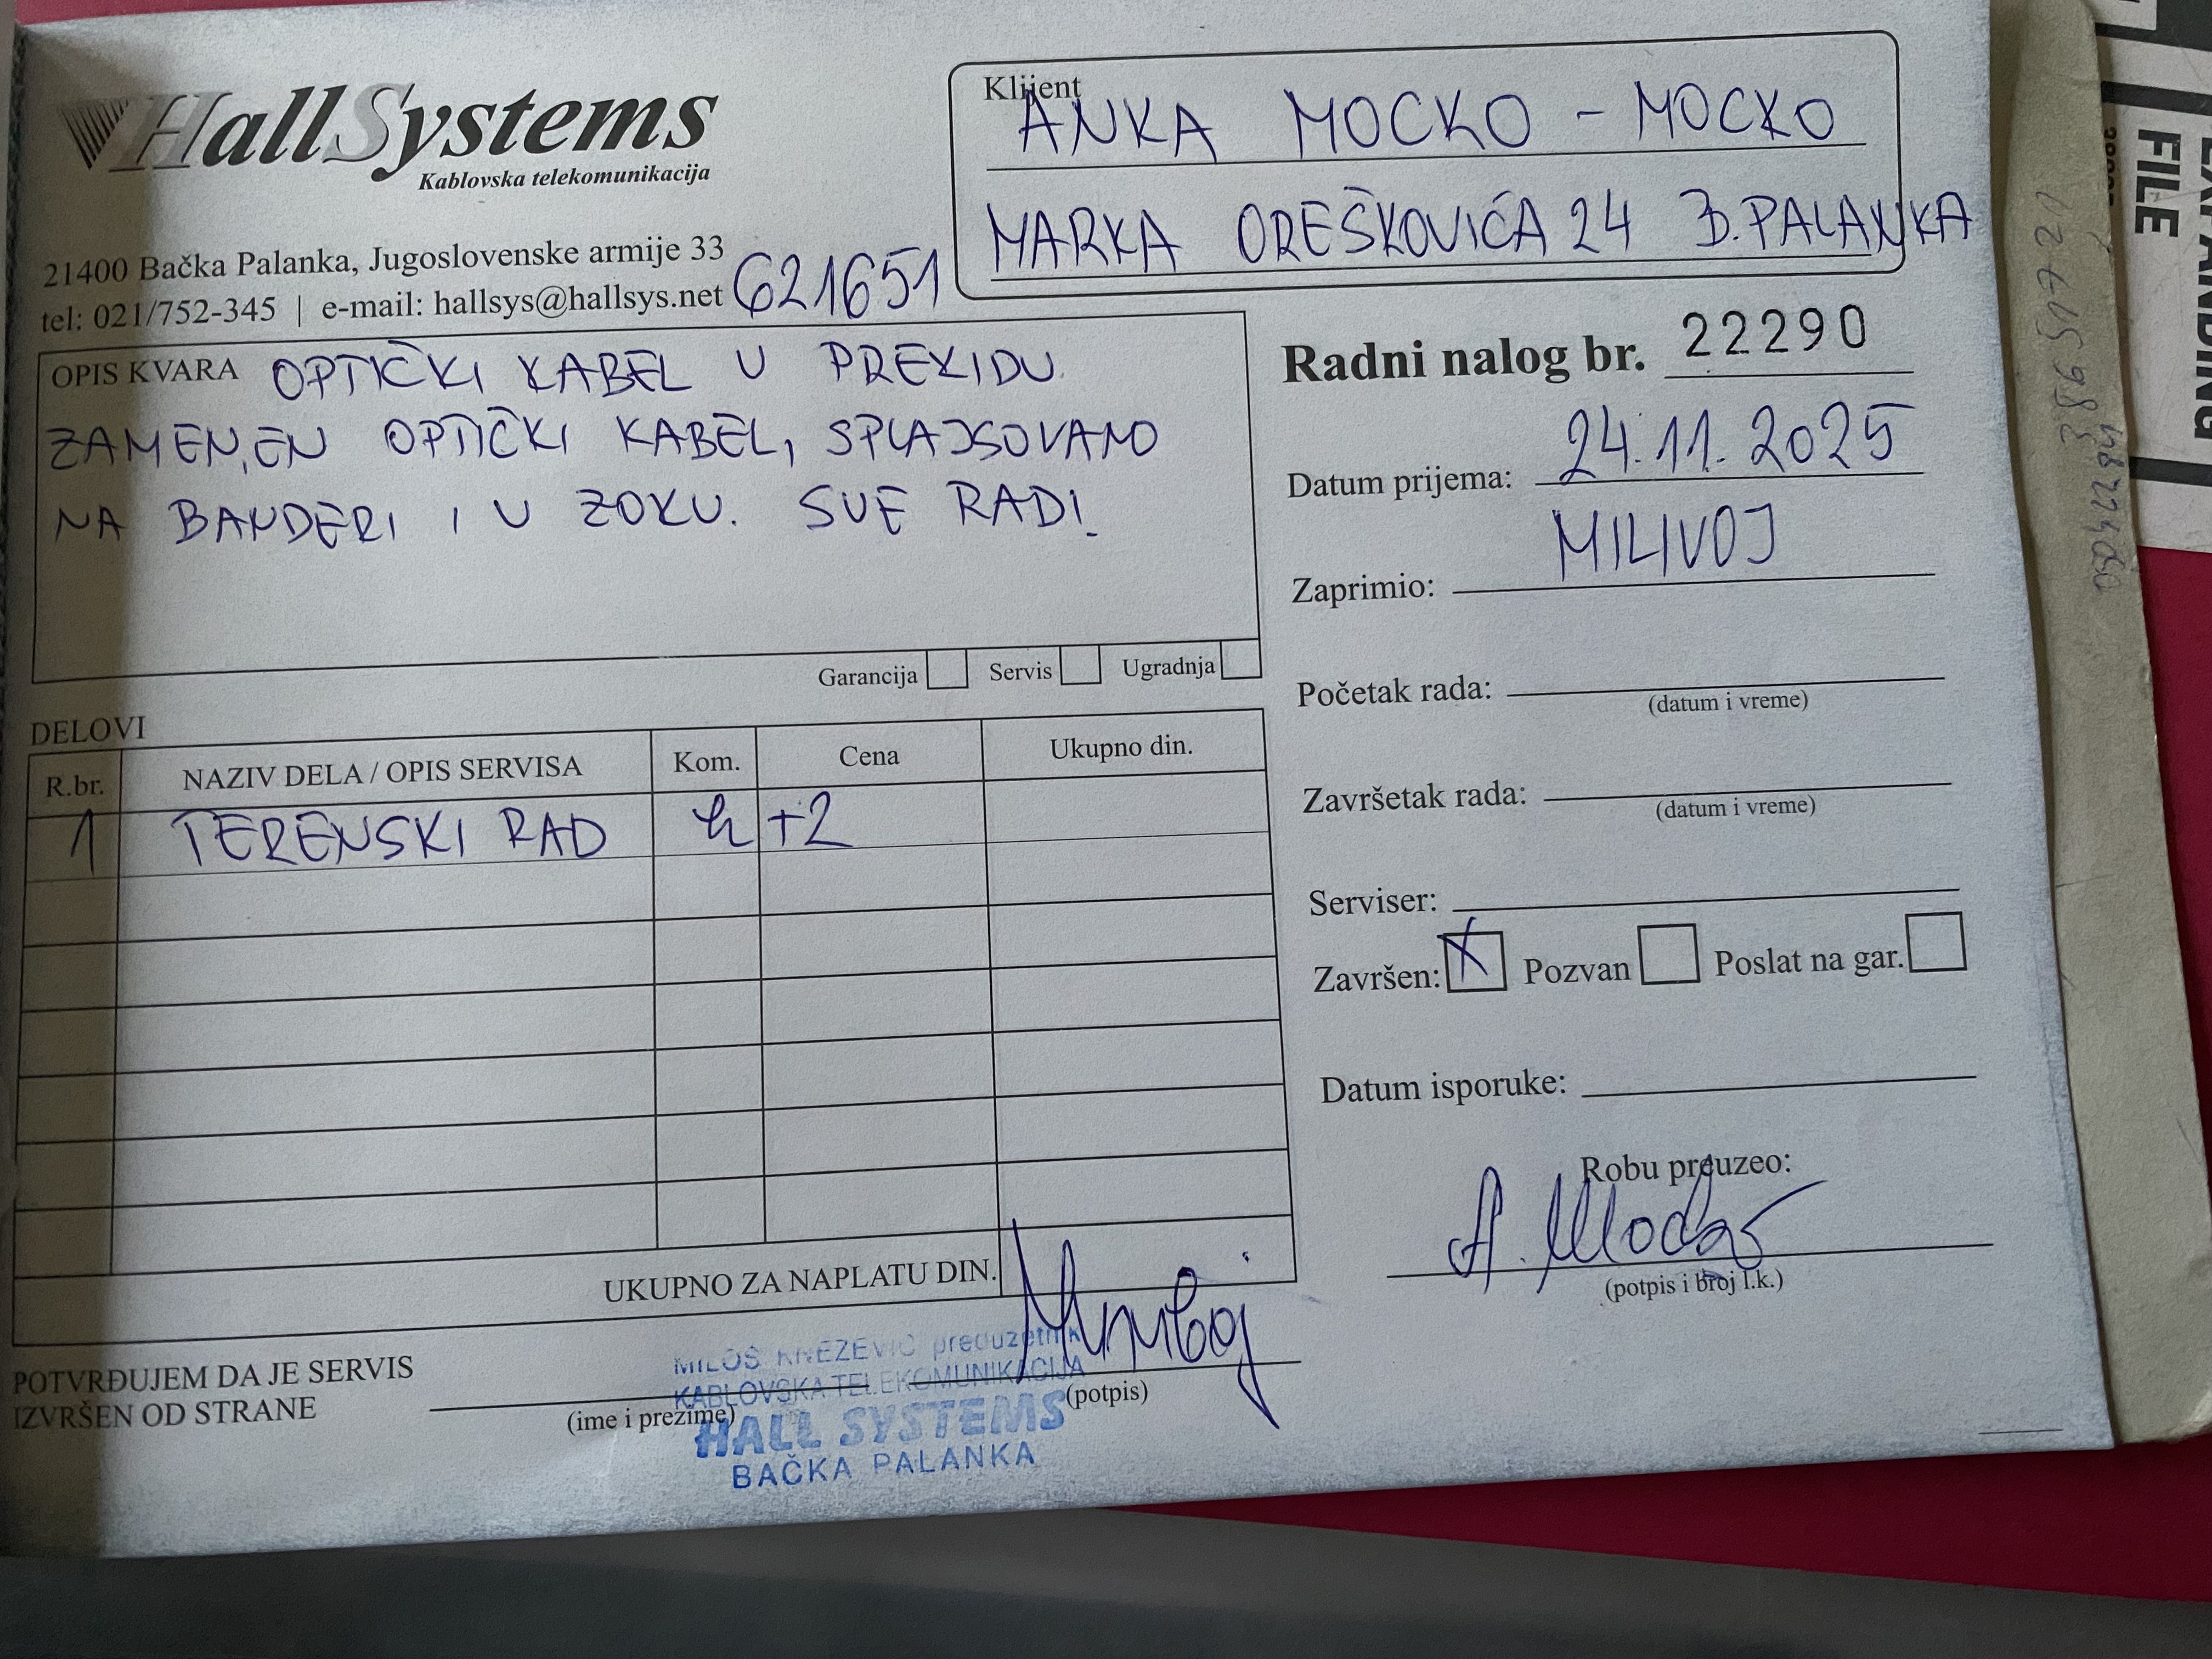 HallSystems
Kablovska telekomunikacija
21400 Bačka Palanka, Jugoslovenske armije 33
tel: 021/752-345 | e-mail: hallsys@hallsys.net
621651
Klijent
ANKA MOCKO - MOCKO
MARKA OREŠKOVIĆA 24 B.PALANKA
OPIS KVARA OPTIČKI KABEL U PREKIDU.
ZAMENJEN OPTIČKI KABEL, SPLAJSOVANO
NA BANDERI I U ZOKU. SVE RADI.
Garancija Servis Ugradnja
Radni nalog br. 22290
Datum prijema: 24.11.2025
Zaprimio: MILIVOJ
Početak rada:
(datum i vreme)
Završetak rada:
(datum i vreme)
Serviser:
Završen: X Pozvan Poslat na gar.
Datum isporuke:
Robu preuzeo:
(potpis i broj l.k.)
DELOVI
R.br. NAZIV DELA / OPIS SERVISA Kom. Cena Ukupno din.
1 TERENSKI RAD h +2
UKUPNO ZA NAPLATU DIN.
POTVRĐUJEM DA JE SERVIS
IZVRŠEN OD STRANE
(ime i prezime)
(potpis)
MILOŠ KNEŽEVIĆ preduzetnik
KABLOVSKA TELEKOMUNIKACIJA
HALL SYSTEMS
BAČKA PALANKA
FILE